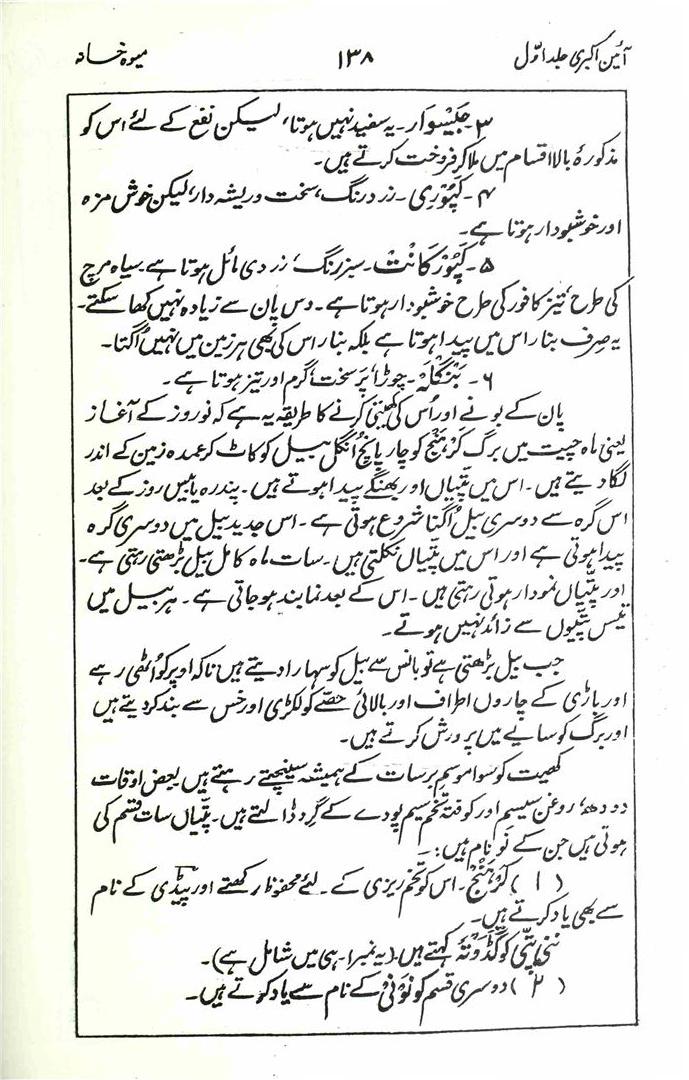 آئین اکبری جلد اوّل ۱۳۸ میوہ خانہ
۳۔ جَیسْوار۔ یہ سفید نہیں ہوتا، لیکن نفع کے لئے اس کو
مذکورۂ بالا اقسام میں ملا کر فروخت کرتے ہیں۔
۴۔ کَپُوْرِی۔ زرد رنگ، سخت و ریشہ دار، لیکن خوش مزہ
اور خوشبودار ہوتا ہے۔
۵۔ کَپُوْر کَانْت۔ سبز رنگ، زردی مائل ہوتا ہے۔ سیاہ مرچ
کی طرح، تیز کافور کی طرح خوشبودار ہوتا ہے۔ دس پان سے زیادہ نہیں کھا سکتے۔
یہ صِرف بنارس میں پیدا ہوتا ہے بلکہ بنارس کی بھی ہر زمین میں نہیں اُگتا۔
۶۔ بَنْگلَہ۔ چوڑا، پَر سخت، گرم اور تیز ہوتا ہے۔
پان کے بونے اور اُس کی کھیتی کرنے کا طریقہ یہ ہے کہ نوروز کے آغاز
یعنی ماہ چیت میں برگ کَرْہَنْج کو چار پانچ اُنگل بیل کو کاٹ کر عمدہ زمین کے اندر
لگا دیتے ہیں۔ اس میں پتّیاں اور بھنگے پیدا ہوتے ہیں۔ پندرہ یا بیس روز کے بعد
اس گرہ سے دوسری بیل اُگنا شروع ہوتی ہے۔ اس جدید بیل میں دوسری گرہ
پیدا ہوتی ہے اور اس میں پتّیاں نکلتی ہیں۔ سات ماہ کامل بیل بڑھتی رہتی ہے۔
اور پتّیاں نمودار ہوتی رہتی ہیں۔ اس کے بعد نما بند ہو جاتی ہے۔ ہر بیل میں
تیس پتّیوں سے زائد نہیں ہوتے۔
جب بیل بڑھتی ہے تو بانس سے بیل کو سہارا دیتے ہیں تاکہ اوپر کو اُٹھی رہے
اور باڑی کے چاروں اطراف اور بالائی حصّے کو لکڑی اور خس سے بند کر دیتے ہیں
اور برگ کو سایے میں پرورش کرتے ہیں۔
کھیت کو سوا موسم برسات کے ہمیشہ سینچتے رہتے ہیں بعض اوقات
دودھ، روغن سیسم اور کوفتۂ تخم سیم پودے کے گرد ڈالتے ہیں۔ پتّیاں سات قسم کی
ہوتی ہیں جن کے نَو نام ہیں:۔
(۱) کَرْہَنْج۔ اس کو تخم ریزی کے۔ لئے محفوظ رکھتے اور پیڈی کے نام
سے بھی یاد کرتے ہیں۔
نئی پتّی کو گَڈَوْتَہ کہتے ہیں (یہ نمبر۱۔ ہی میں شامل ہے)۔
(۲) دوسری قسم کو نَوْتِی کے نام سے یاد کرتے ہیں۔